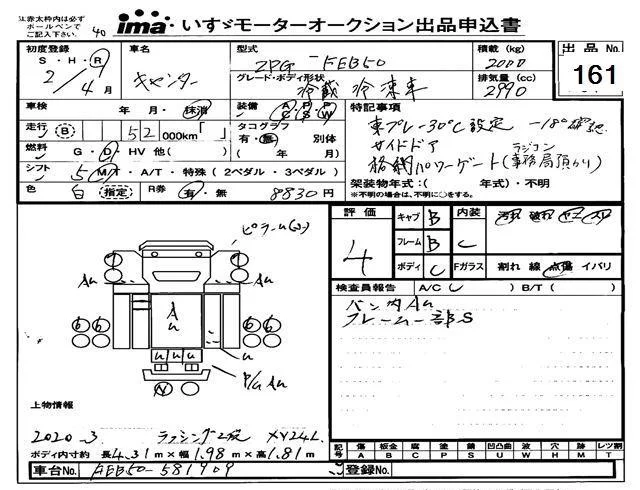 注)赤太枠内は必ず
ボールペンで
ご記入下さい。
40
ima いすゞモーターオークション出品申込書
出品No.
161
初度登録
S・H・R
2/4月
車名
キャンター
型式
2PG-FEB50
グレード・ボディ形状
冷蔵冷凍車
積載 (kg)
2000
排気量 (cc)
2990
車検
年・月・抹消
装備
A/C P/S P/W
特記事項
東プレ-30℃設定
サイドドア
格納パワーゲート(ラジコン
走行 (B) 52 000km「 」
タコグラフ
有・無 別体
( 年 月)
燃料 G・D・HV 他( )
シフト 5 M/T・A/T・特殊(2ペダル・3ペダル)
色 白 指定
R券 有・無 8830円
架装物年式:( 年式)・不明
※不明の場合は、不明に○をする。
評価
4
キャブ B
フレーム B
ボディ C
内装 C
Fガラス 割れ 線 点傷 イバリ
検査員報告 A/C( ) B/T( )
バン内AU
フレーム一部S
Au
A
u
u u u
Au
上物情報
2020 3 ラッシング2段 XV24L
ボディ内寸約 長4.31m×幅1.98m×高1.81m
記号
傷 板金 腐 塗 錆 凹凸曲 波 穴 跡 レツ割
A B C P S U W H M T
車台No. FEB50-581909
登録No.